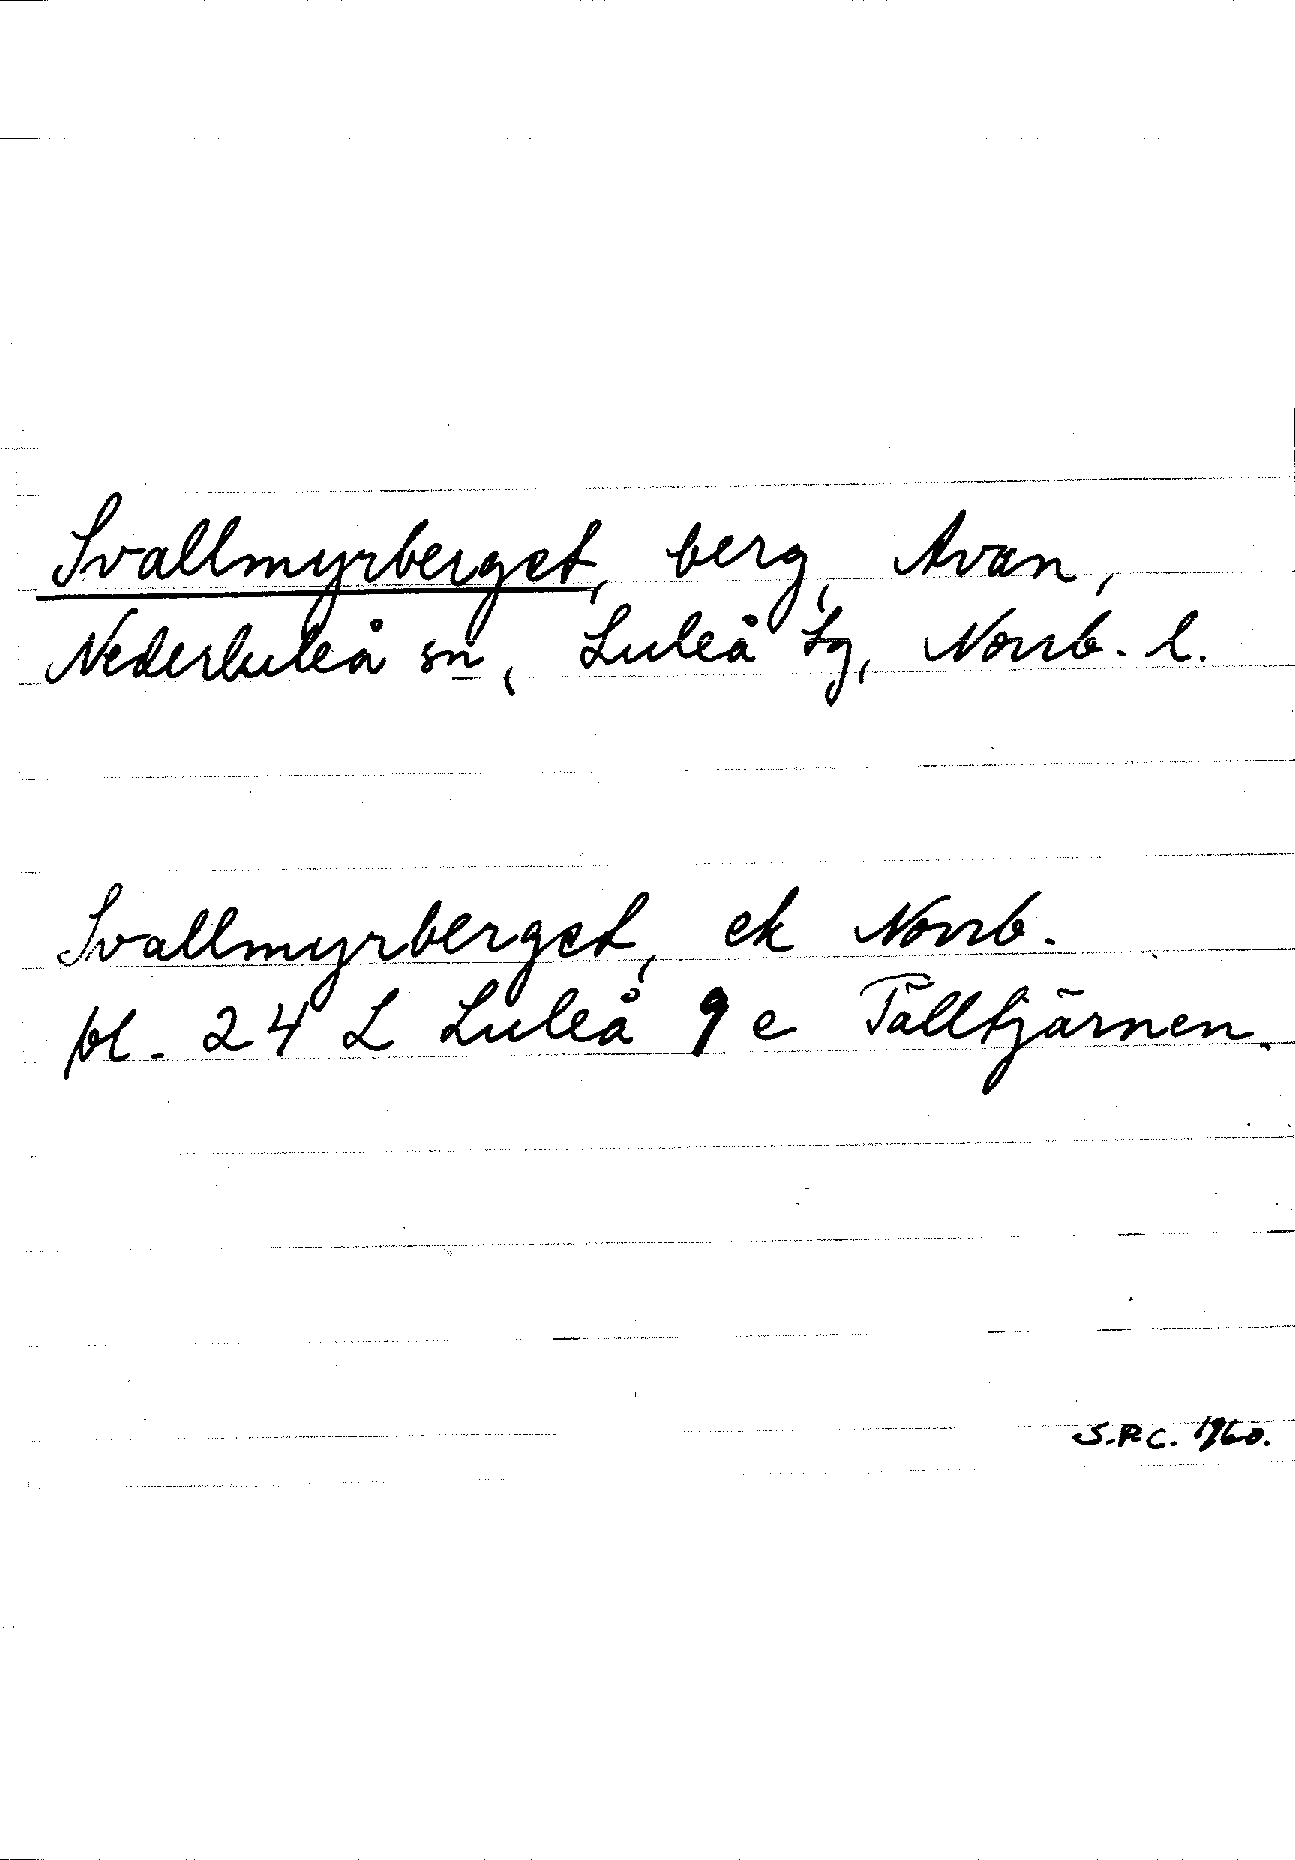 Svallmyrberget, berg, Avan,
Nederluleå sn, Luleå tg, Norrb. l.
Svallmyrberget, ek Norrb.
bl. 24 L Luleå 9 e Talltjärnen.
S.P.C. 1960.